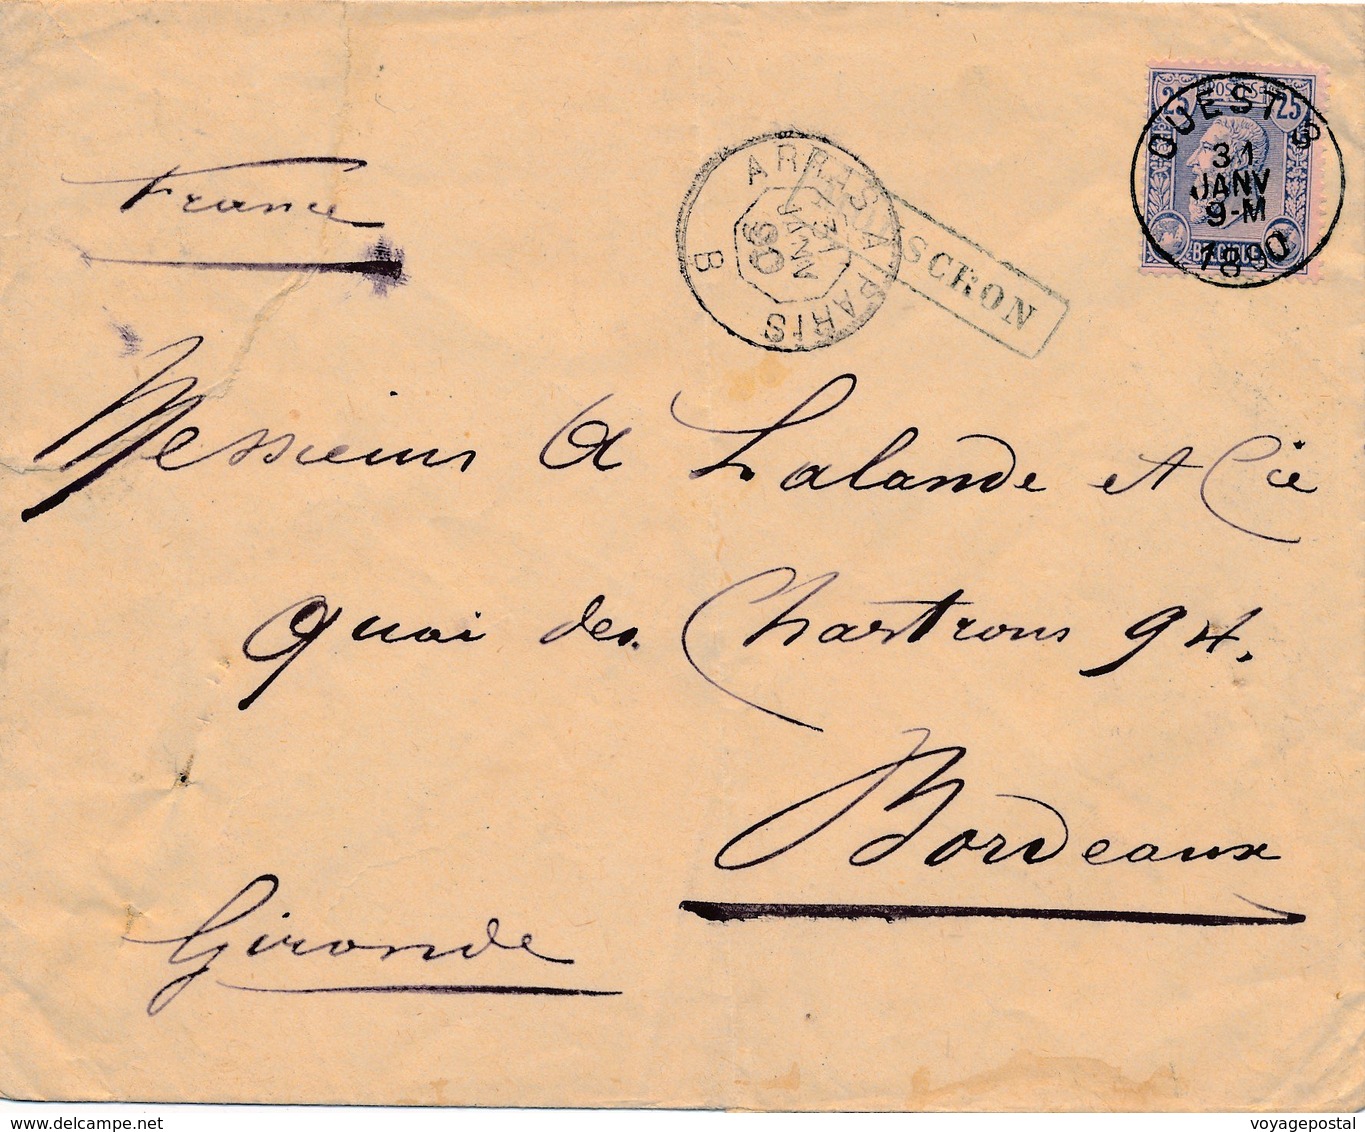 25 POSTES 25
OUEST 3
31
JANV
9-M
1890
BELGIQUE
ARRAS A PARIS
31
JANV
90
B
SCRON
France
Messieurs A Lalande et Cie
Quai des Chartrons 94.
Bordeaux
Gironde
voyagepostal